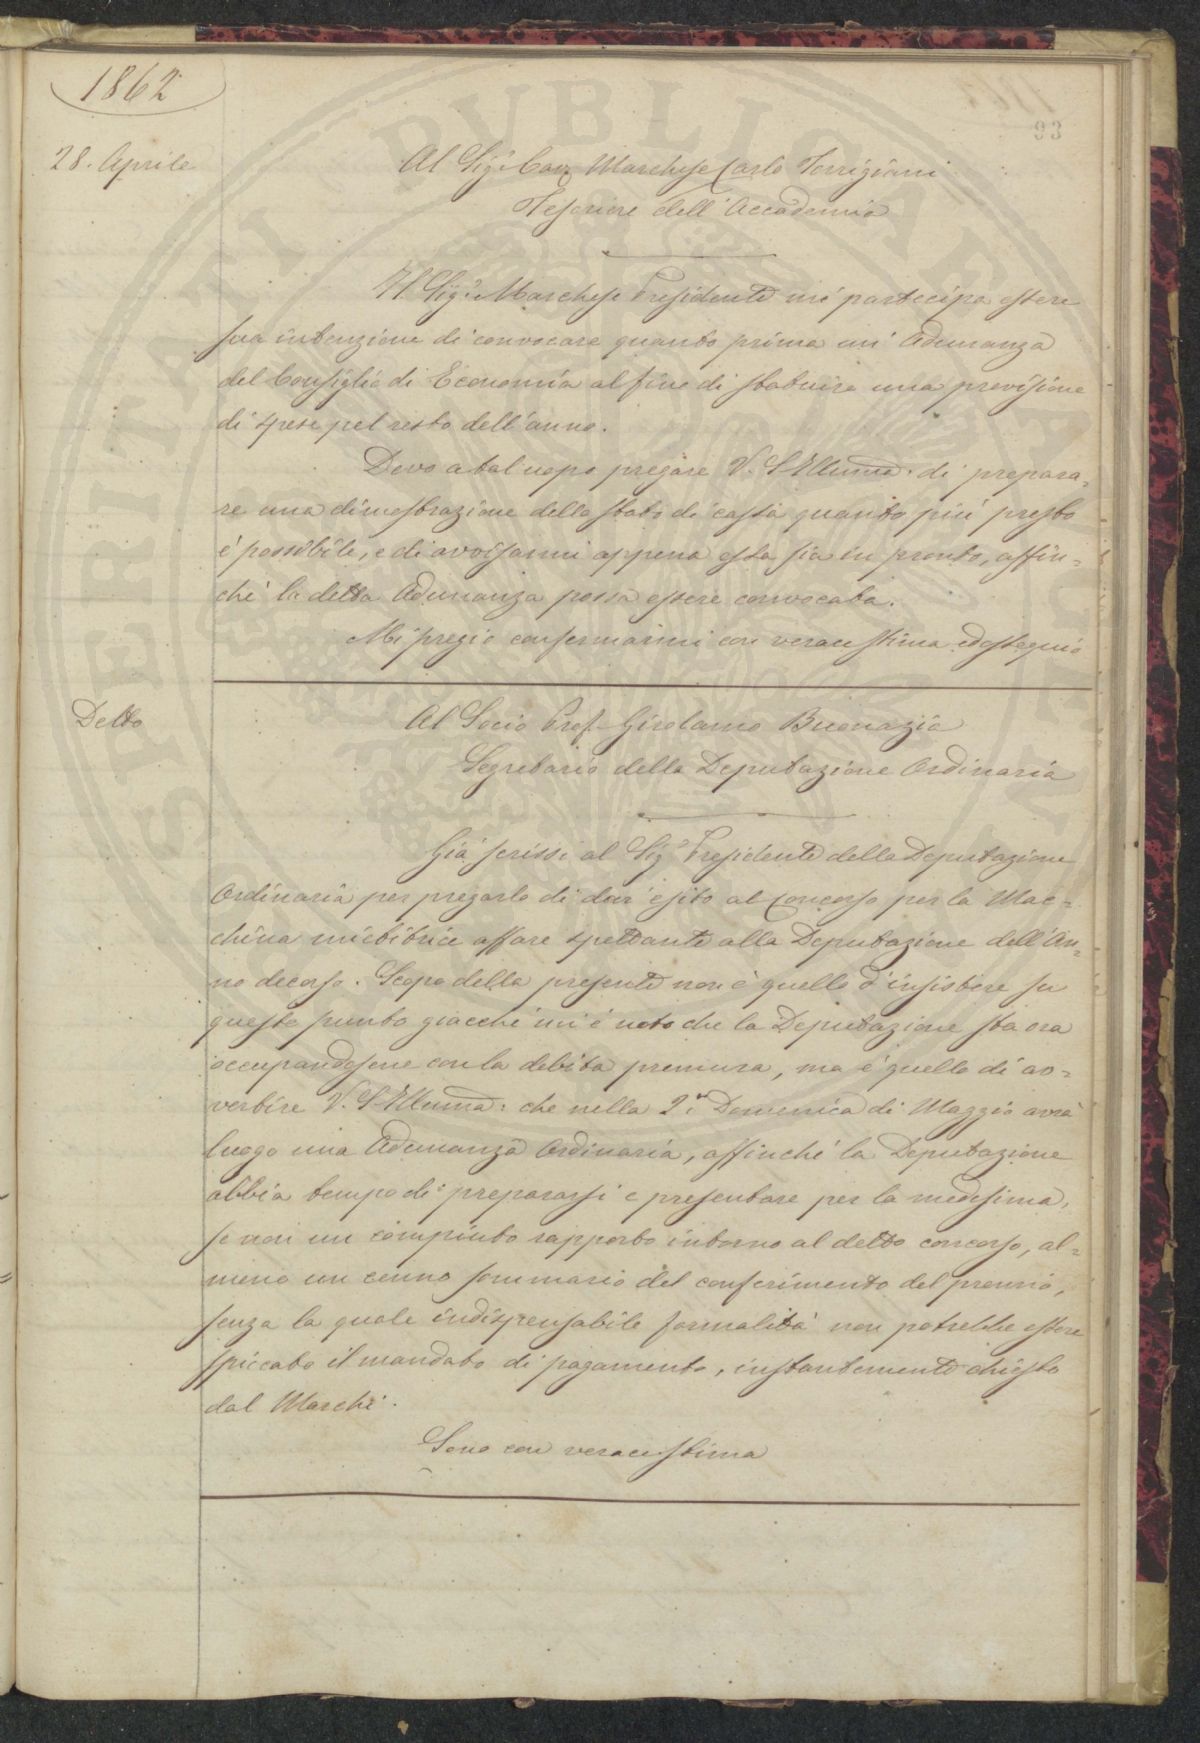 1862
93
28. Aprile
Al Sigr Cav. Marchese Carlo Torrigiani
Tesoriere dell'Accademia
Il Sigr Marchese Presidente mi partecipa essere
sua intenzione di convocare quanto prima un'Adunanza
del Consiglio di Economia al fine di statuire una previsione
di spese pel resto dell'anno.
Devo a tal uopo pregare V. S. Illuma. di prepara=
re una dimostrazione dello stato di cassa quanto più presto
è possibile, e di avvisarmi appena essa sia in pronto, affin=
chè la detta Adunanza possa essere convocata.
Mi pregio confermarmi con verace stima ed ossequio
Detto
Al Socio Prof. Girolamo Buonazia
Segretario della Deputazione Ordinaria
Già scrissi al Sigr Presidente della Deputazione
Ordinaria per pregarlo di dar esito al Concorso per la Mac=
china mietitrice affare spettante alla Deputazione dell'An=
no decorso. Scopo della presente non è quello d'insistere su
questo punto giacchè mi è noto che la Deputazione sta ora
occupandosene con la debita premura, ma è quello di av=
vertire V. S. Illuma. che nella 2.a Domenica di Maggio avrà
luogo una Adunanza Ordinaria, affinchè la Deputazione
abbia tempo di prepararsi e presentare per la medesima,
se non un compiuto rapporto intorno al detto concorso, al=
meno un cenno sommario del conferimento del premio,
senza la quale indispensabile formalità non potrebbe essere
spiccato il mandato di pagamento, instantemente chiesto
dal Marchi.
Sono con verace stima
SPERITATI PVBLICAE